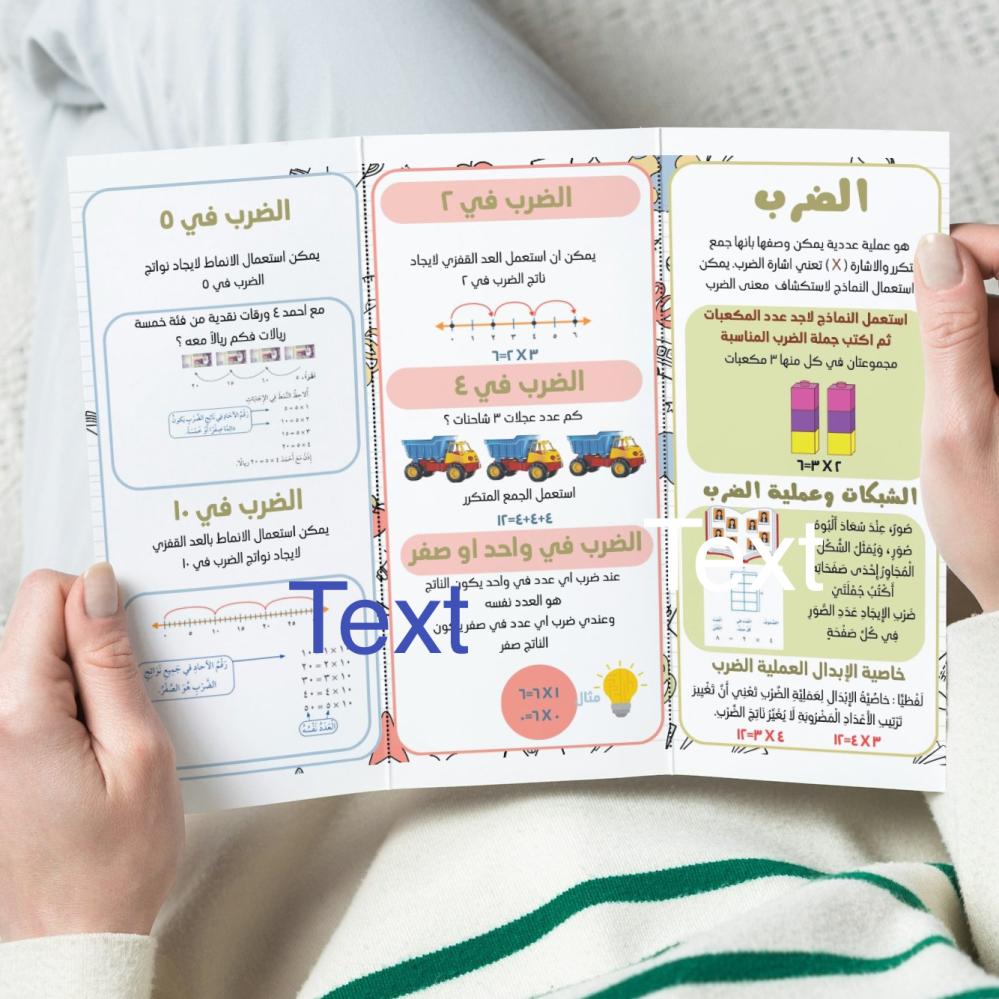 الضرب
هو عملية عددية يمكن وصفها بانها جمع
متكرر والاشارة (X) تعني اشارة الضرب. يمكن
استعمال النماذج لاستكشاف معنى الضرب
استعمل النماذج لاجد عدد المكعبات
ثم اكتب جملة الضرب المناسبة
مجموعتان في كل منها ٣ مكعبات
٦=٣ X ٢
الشبكات وعملية الضرب
صُوَر: عِنْدَ سُعَادَ أَلْبُومُ
صُوَرٍ، وَيُمَثِّلُ الشَّكْلُ
الْمُجَاوِرُ إِحْدَى صَفَحَاتِهِ
أَكْتُبُ جُمْلَتَيْ
ضَرْبٍ لإِيجَادِ عَدَدِ الصُّوَرِ
فِي كُلِّ صَفْحَةٍ
٤ × ٢ = ٨
خاصية الإبدال العملية الضرب
لَفْظِيًّا : خَاصِّيَّةُ الإِبْدَالِ لِعَمَلِيَّةِ الضَّرْبِ تَعْنِي أَنَّ تَغْيِيرَ
تَرْتِيبِ الأَعْدَادِ الْمَضْرُوبَةِ لَا يُغَيِّرُ نَاتِجَ الضَّرْبِ.
١٢=٤ X ٣
١٢=٣ X ٤
الضرب في ٢
يمكن ان استعمل العد القفزي لايجاد
ناتج الضرب في ٢
٠ ١ ٢ ٣ ٤ ٥ ٦
٦=٢ X ٣
الضرب في ٤
كم عدد عجلات ٣ شاحنات ؟
استعمل الجمع المتكرر
١٢=٤+٤+٤
الضرب في واحد او صفر
عند ضرب اي عدد في واحد يكون الناتج
هو العدد نفسه
وعندي ضرب اي عدد في صفر يكون
الناتج صفر
مثال
٦=٦ X ١
٠=٦ X ٠
الضرب في ٥
يمكن استعمال الانماط لايجاد نواتج
الضرب في ٥
مع احمد ٤ ورقات نقدية من فئة خمسة
ريالات فكم ريالاً معه ؟
٥ ١٠ ١٥ ٢٠
أُلَاحِظُ النَّمَطَ فِي الإِجَابَاتِ
٥ = ٥ × ١
١٠ = ٥ × ٢
١٥ = ٥ × ٣
٢٠ = ٥ × ٤
رَقْمُ الآحَادِ فِي نَاتِجِ الضَّرْبِ يَكُونُ
دَائِمًا صِفْرًا أَوْ خَمْسَةً
إِذَنْ مَعَ أَحْمَدَ ٤ × ٥ = ٢٠ رِيَالًا.
الضرب في ١٠
يمكن استعمال الانماط بالعد القفزي
لايجاد نواتج الضرب في ١٠
١٠ = ١ × ١٠
٢٠ = ٢ × ١٠
٣٠ = ٣ × ١٠
٤٠ = ٤ × ١٠
٥٠ = ٥ × ١٠
رَقْمُ الآحَادِ فِي جَمِيعِ نَوَاتِجِ
الضَّرْبِ هُوَ الصِّفْرُ.
الْعَدَدُ نَفْسُهُ
Text
Text